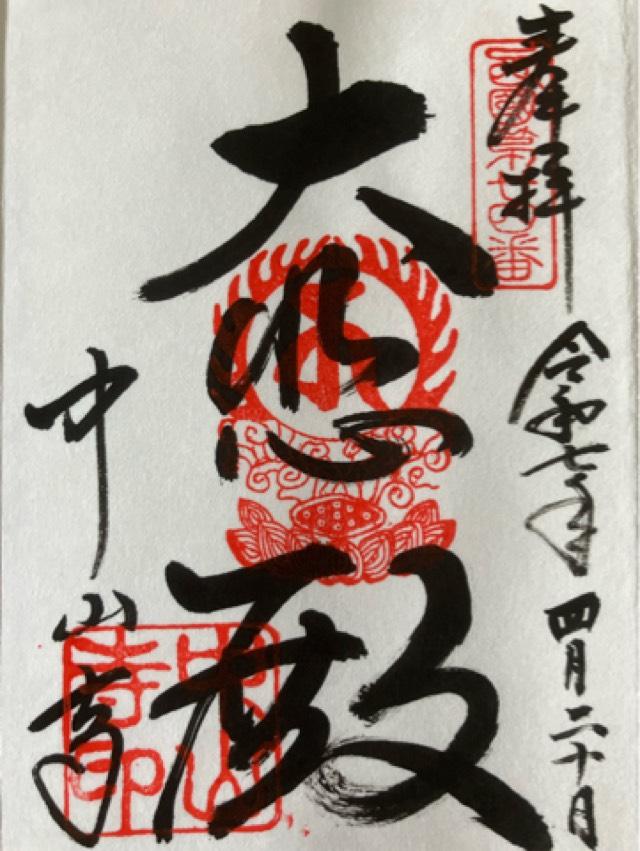 奉拝
西國第廿四番
令和七年四月二十日
大悲殿
中山寺
中山寺印